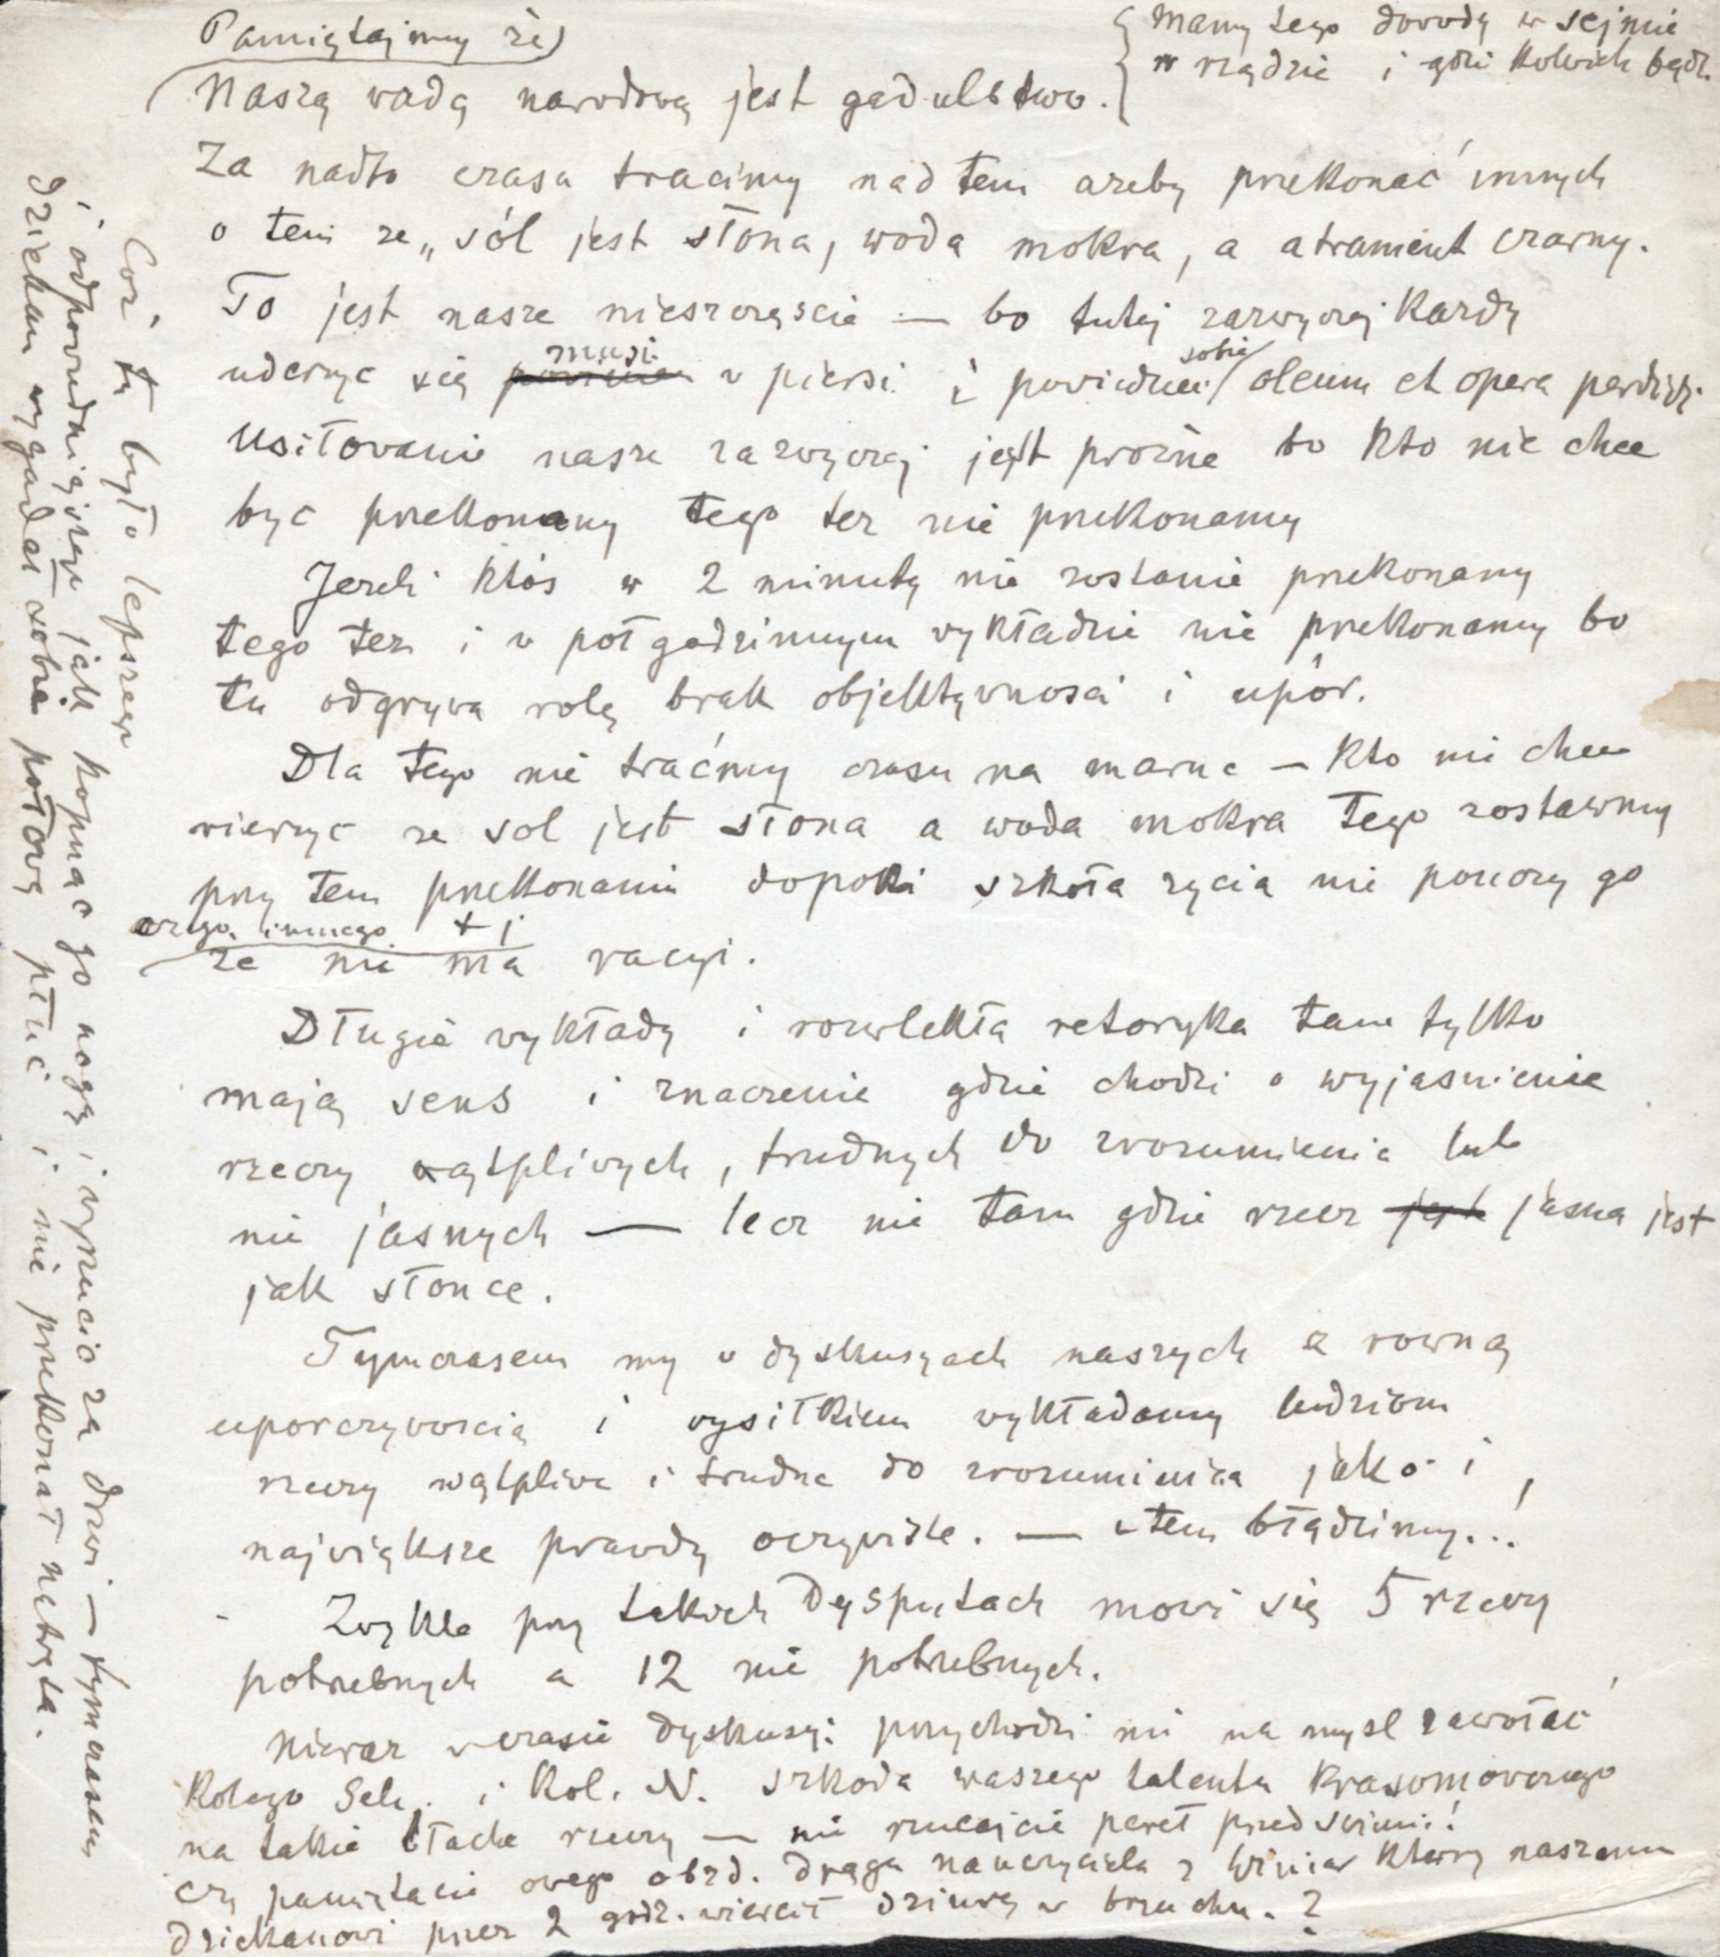 Pamiętajmy że
Naszą wadą narodową jest gadulstwo.
{ Mamy tego dowody w sejmie
w rządzie i gdzie kolwiek bądź.
Za nadto czasu tracimy nad tem azeby przekonać innych
o tem ze „sól jest słona, woda mokra, a atrament czarny.
To jest nasze nieszczęscie — bo tutaj zazwyczaj kazdy
uderzyc się musi w piersi i powiedziec sobie oleum et opera perdidi
Usiłowanie nasze zazwyczaj jest prózne bo kto nie chce
byc przekonany tego tez nie przekonamy
Jezeli ktos w 2 minuty nie zostanie przekonany
tego tez i w poł godzinnym wykładzie nie przekonamy bo
tu odgrywa rolę brak objektywnosci i upór.
Dla tego nie traćmy czasu na marne — kto nie chce
wierzyc ze sol jest słona a woda mokra tego zostawmy
przy tem przekonaniu dopoki szkoła zycia nie pouczy go
czego innego t j
ze nie ma racyi.
Długie wykłady i rozwlekła retoryka tam tylko
mają sens i znaczenie gdzie chodzi o wyjasnienie
rzeczy wątpliwych, trudnych do zrozumienia lub
nie jasnych — lecz nie tam gdzie rzecz jest jasna jest
jak słonce.
Tymczasem my w dyskusyach naszych z rowną
uporczywoscią i wysiłkiem wykładamy ludziom
rzeczy wątpliwe i trudne do zrozumienia jako i
największe prawdy oczywiste. — w tem błądzimy..!
Zwykle przy takich dysputach mowi się 5 rzeczy
potrzebnych a 12 nie potrzebnych.
Nieraz w czasie dyskusyi przychodzi mi na mysl zawołać
Kolego Sek. i Kol. N. szkoda waszego talentu krasomowczego
na takie błache rzeczy — nie rzucajcie pereł przed swinie!
czy pamiętacie owego obrzd. draga nauczyciela z Winiar ktory naszemu
dziekanowi przez 2 godz. wiercił dziurę w brzuchu.?
Coz tu było lepszego
i odpowiedniejszego jak kopnąc go nogą i wyrzucic za drzwi — tymczasem
dziekan wygadał sobie połowę płuc i nie przekonał natręta.